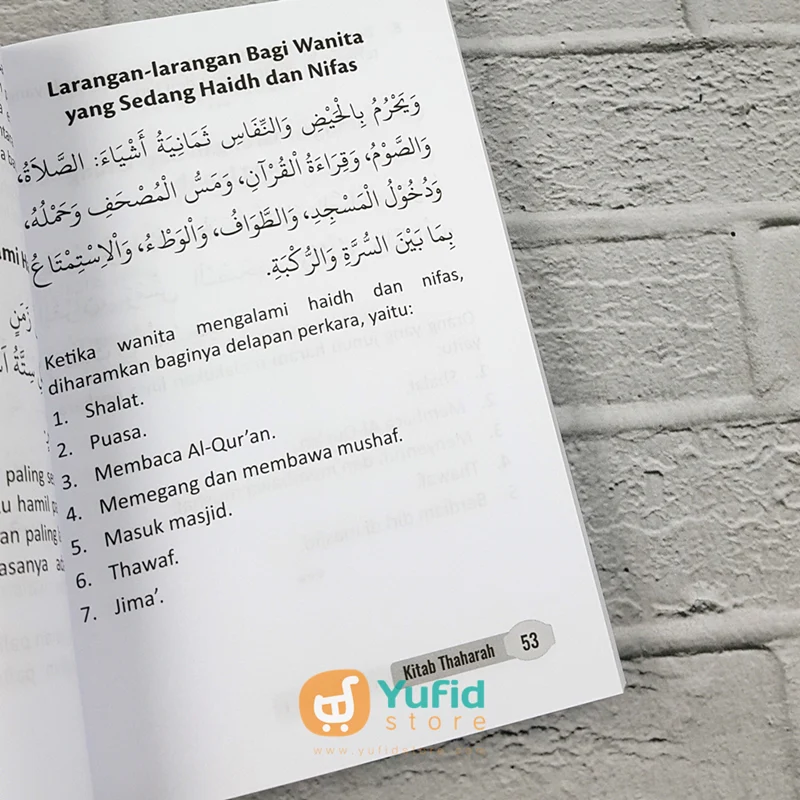 Larangan-larangan Bagi Wanita
yang Sedang Haidh dan Nifas
وَيَحْرُمُ بِالْحَيْضِ وَالنِّفَاسِ ثَمَانِيَةُ أَشْيَاءَ: الصَّلَاةُ،
وَالصَّوْمُ، وَقِرَاءَةُ الْقُرْآنِ، وَمَسُّ الْمُصْحَفِ وَحَمْلُهُ،
وَدُخُوْلُ الْمَسْجِدِ، وَالطَّوَافُ، وَالْوَطْءُ، وَالْاِسْتِمْتَاعُ
بِمَا بَيْنَ السُّرَّةِ وَالرُّكْبَةِ.
Ketika wanita mengalami haidh dan nifas,
diharamkan baginya delapan perkara, yaitu:
1. Shalat.
2. Puasa.
3. Membaca Al-Qur'an.
4. Memegang dan membawa mushaf.
5. Masuk masjid.
6. Thawaf.
7. Jima'.
Kitab Thaharah 53
زَمَنٍ
سِتَّةُ
paling
hamil
an paling
asanya
Yufid
store